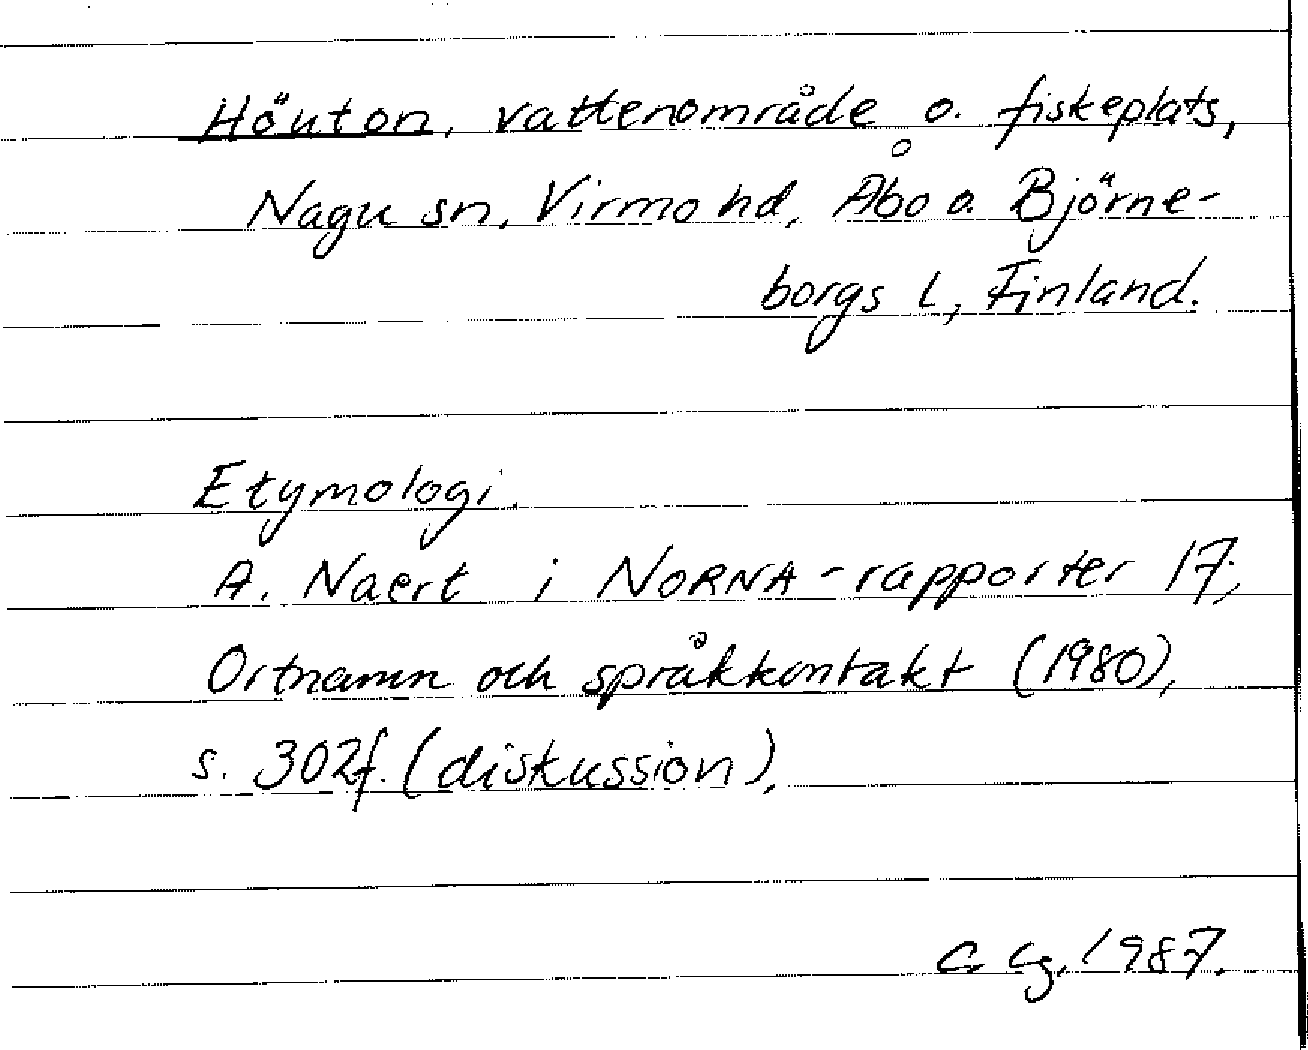 Höuton, vattenområde o. fiskeplats,
Nagu sn, Virmo hd, Åbo o. Björne-
borgs L, Finland.
Etymologi.
A. Naert i NORNA-rapporter 17,
Ortnamn och språkkontakt (1980),
s. 302f. (diskussion),
C. Cg. 1987.